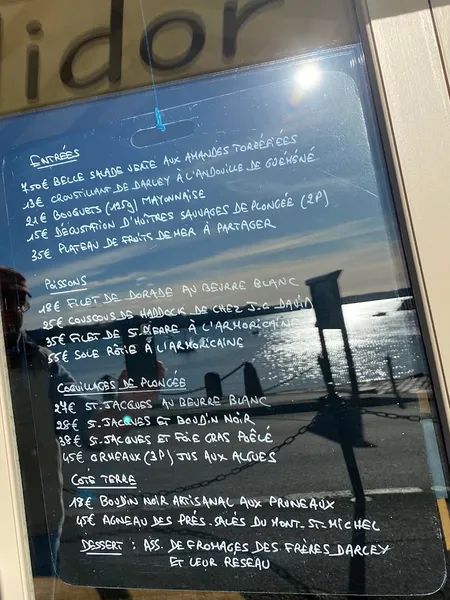 idor
ENTRÉES
7.50€ BELLE SALADE VERTE AUX AMANDES TORRÉFIÉES
13€ CROUSTILLANT DE DARLEY À L'ANDOUILLE DE GUÉMÉNÉ
21€ BOUQUETS (125g) MAYONNAISE
15€ DÉGUSTATION D'HUÎTRES SAUVAGES DE PLONGÉE (2P)
35€ PLATEAU DE FRUITS DE MER À PARTAGER
POISSONS
18€ FILET DE DORADE AU BEURRE BLANC
25€ COUSCOUS DE HADDOCK DE CHEZ J.C. DAVID
35€ FILET DE ST. PIERRE À L'ARMORICAINE
55€ SOLE RÔTIE À L'ARMORICAINE
COQUILLAGES DE PLONGÉE
27€ ST. JACQUES AU BEURRE BLANC
28€ S. JACQUES ET BOUDIN NOIR
38€ S. JACQUES ET FOIE GRAS POÊLÉ
45€ ORMEAUX (3P) JUS AUX ALGUES
COTÉ TERRE
18€ BOUDIN NOIR ARTISANAL AUX PRUNEAUX
45€ AGNEAU DES PRÉS. SALÉS DU MONT. ST. MICHEL
DESSERT : ASS. DE FROMAGES DES FRÈRES DARLEY
ET LEUR RESEAU